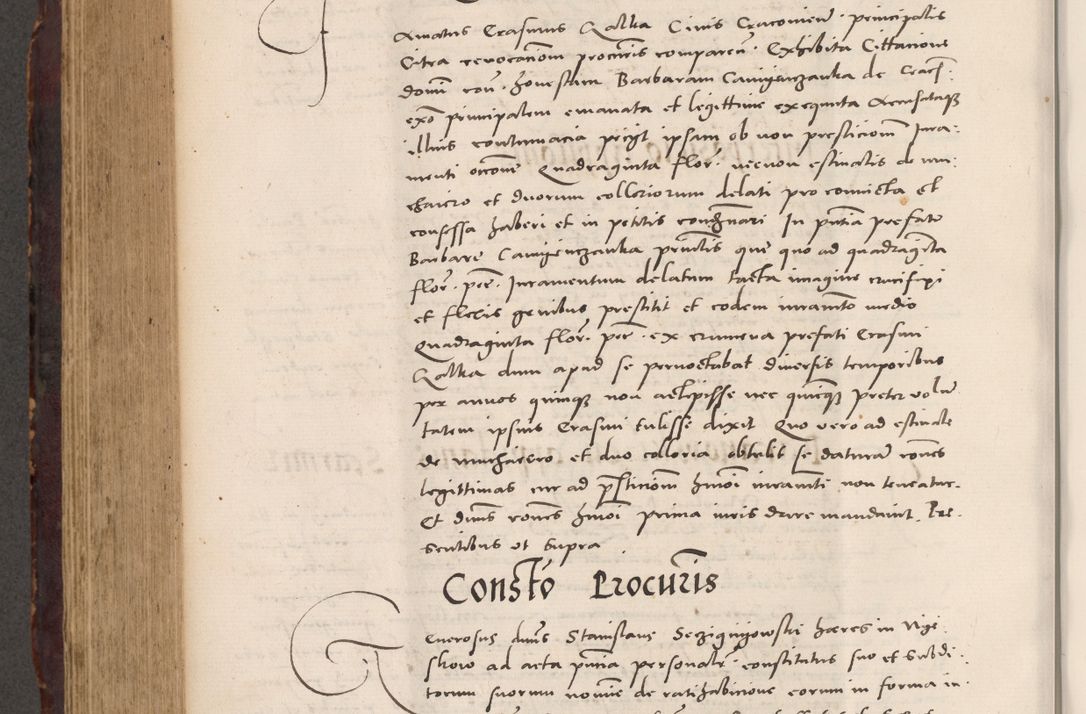 Amatus Erasmus Kalka Civis Cracovien̄. principalis
Citra revocacionem procur̄is comparen̄. Exhibita Cittacione
domi con. honestam Barbaram Camigenczanka de Crac̄.
ex̄o principalem emanata et legittime exequuta Accusataq3
illius contumacia ipsam ob non presticiom̄ Iura-
menti Quadraginta flor̄. necnon estimatis de
et duorum colleriorum delati pro convicta et
confessa haberi et in petitis condemnari In pn̄tia prefate
Barbare Camigenczanka prin̄lis que quo ad quadraginta
flor̄. per̄. Iuramentum delatum tacta imagine crucifixi
et flexis genibus prestitit et eodem iuram̄to medio
Quadraginta flor̄. per̄. ex crumena prefati Erasmi
Kalka dum apud se pernoctabat diversis temporibus
per annos quinq3 non accepisse nec preter volun̄
tatem ipsius Erasmi tulisse dixit Quo vero ad estimate
de et duo colloria obtulit se daturam cōnes
legittimas cur ad p̄sticiom̄ hm̄oi iuram̄ti non teneatur.
Et dn̄us cōnes hm̄oi prima iuris dare mandavit. Pre-
sentibus ut supra
Consto Procur̄is
Generosus dn̄us Stanislaus hæres in
ad acta pn̄cia personalr̄. constitutus suo et Subdi-
torum suorum nomine de ratihabicione eorum in forma in-